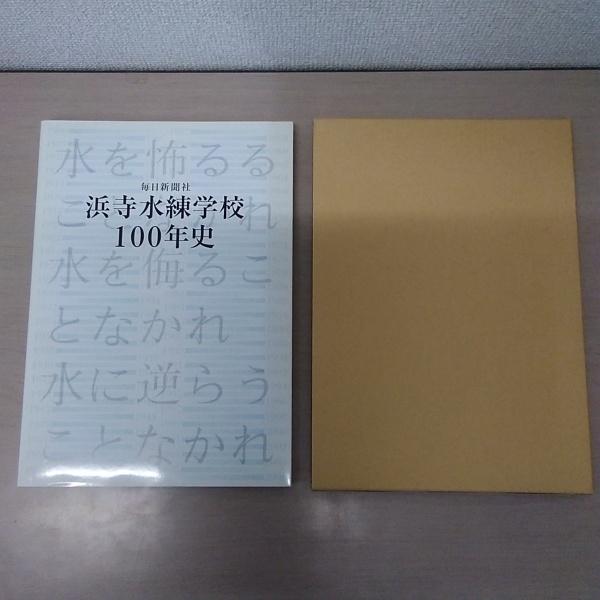 毎日新聞社
浜寺水練学校
100年史
水を怖るる
ことなかれ
水を侮るこ
となかれ
水に逆らう
ことなかれ